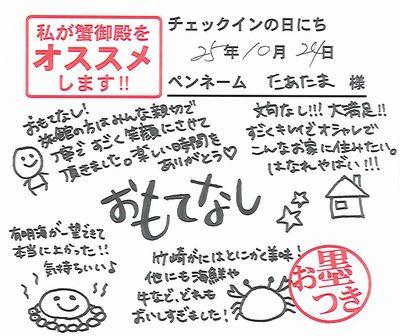 私が蟹御殿を
オススメ
します!!
チェックインの日にち
25年10月24日
ペンネーム たあたま 様
おもてなし!
旅館の方はみんな親切で
丁寧ですごく笑顔にさせて
頂きました。楽しい時間を
ありがとう♡
文句なし!!! 大満足!!
すごくキレイでオシャレで
こんなお家に住みたい。
はなれやばい!!!
おもてなし
有明海が一望できて
本当によかった!!
気持ちいい♪
竹崎がにはとにかく美味!
他にも海鮮や
牛など、どれも
おいしすぎました!
お墨つき